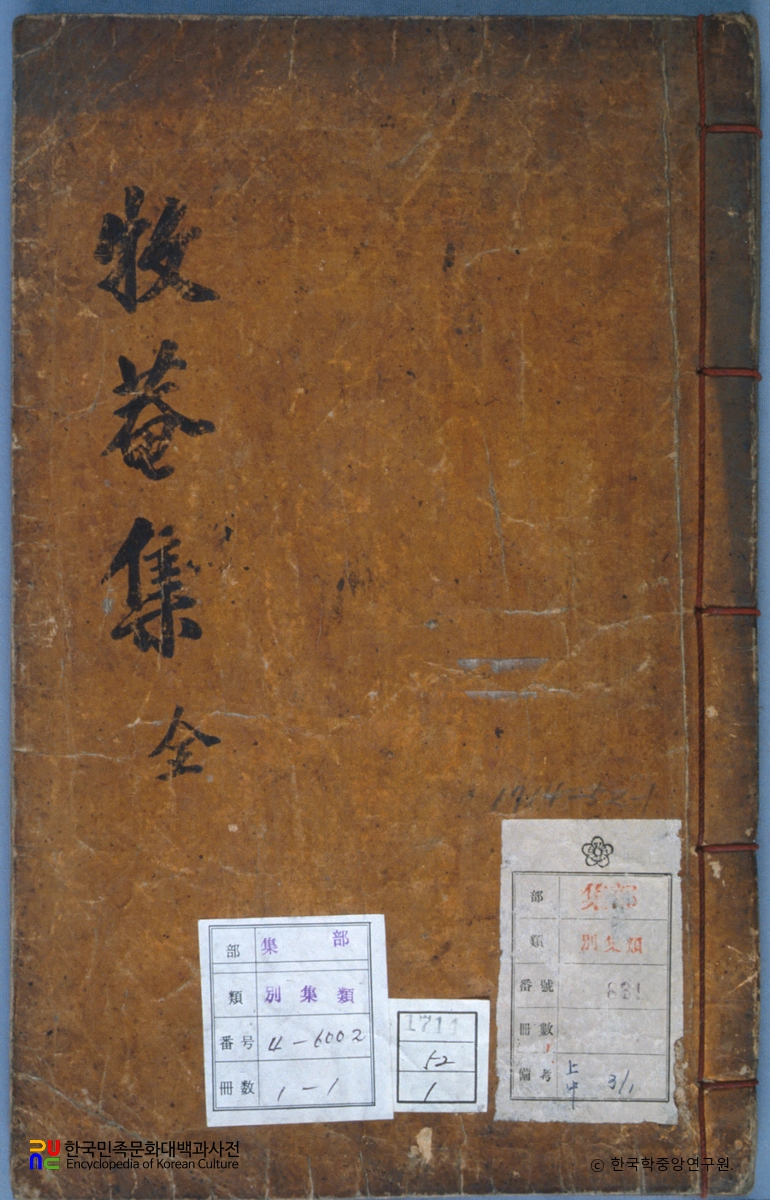 牧菴集
全
部 集 部
類 別 集 類
番号 4-6002
冊数 1-1
1711
52
1
部 集部
類 別集類
番號
冊數 1
備考 上中 3/1
한국민족문화대백과사전
Encyclopedia of Korean Culture
© 한국학중앙연구원.